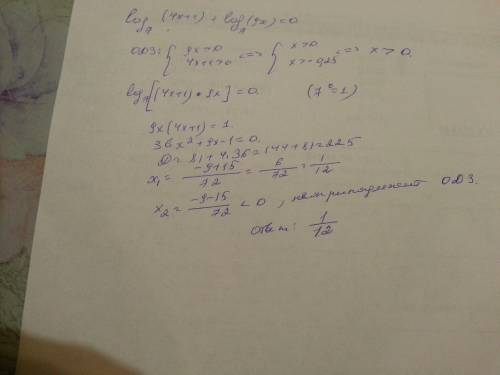 log₇(4x+1) + log₇(9x) = 0
ОДЗ: { 9x>0 4x+1>0 <=> { x>0 x>-0,25 <=> x>0.
log₇[(4x+1)·9x] = 0. (7⁰=1)
9x(4x+1) = 1.
36x²+9x-1=0.
D = 81+4·36=144+81=225
x₁ = (-9+15)/72 = 6/72 = 1/12
x₂ = (-9-15)/72 < 0, не принадлежит ОДЗ.
ответ: 1/12